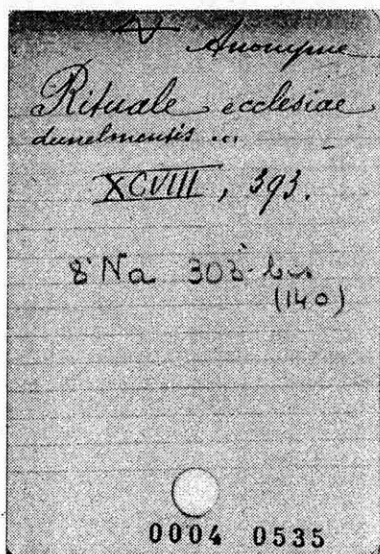 Anonyme
Rituale ecclesiae
dunelmensis ...
XCVIII, 393.
8° Na 302-bis
(140)
0004 0535